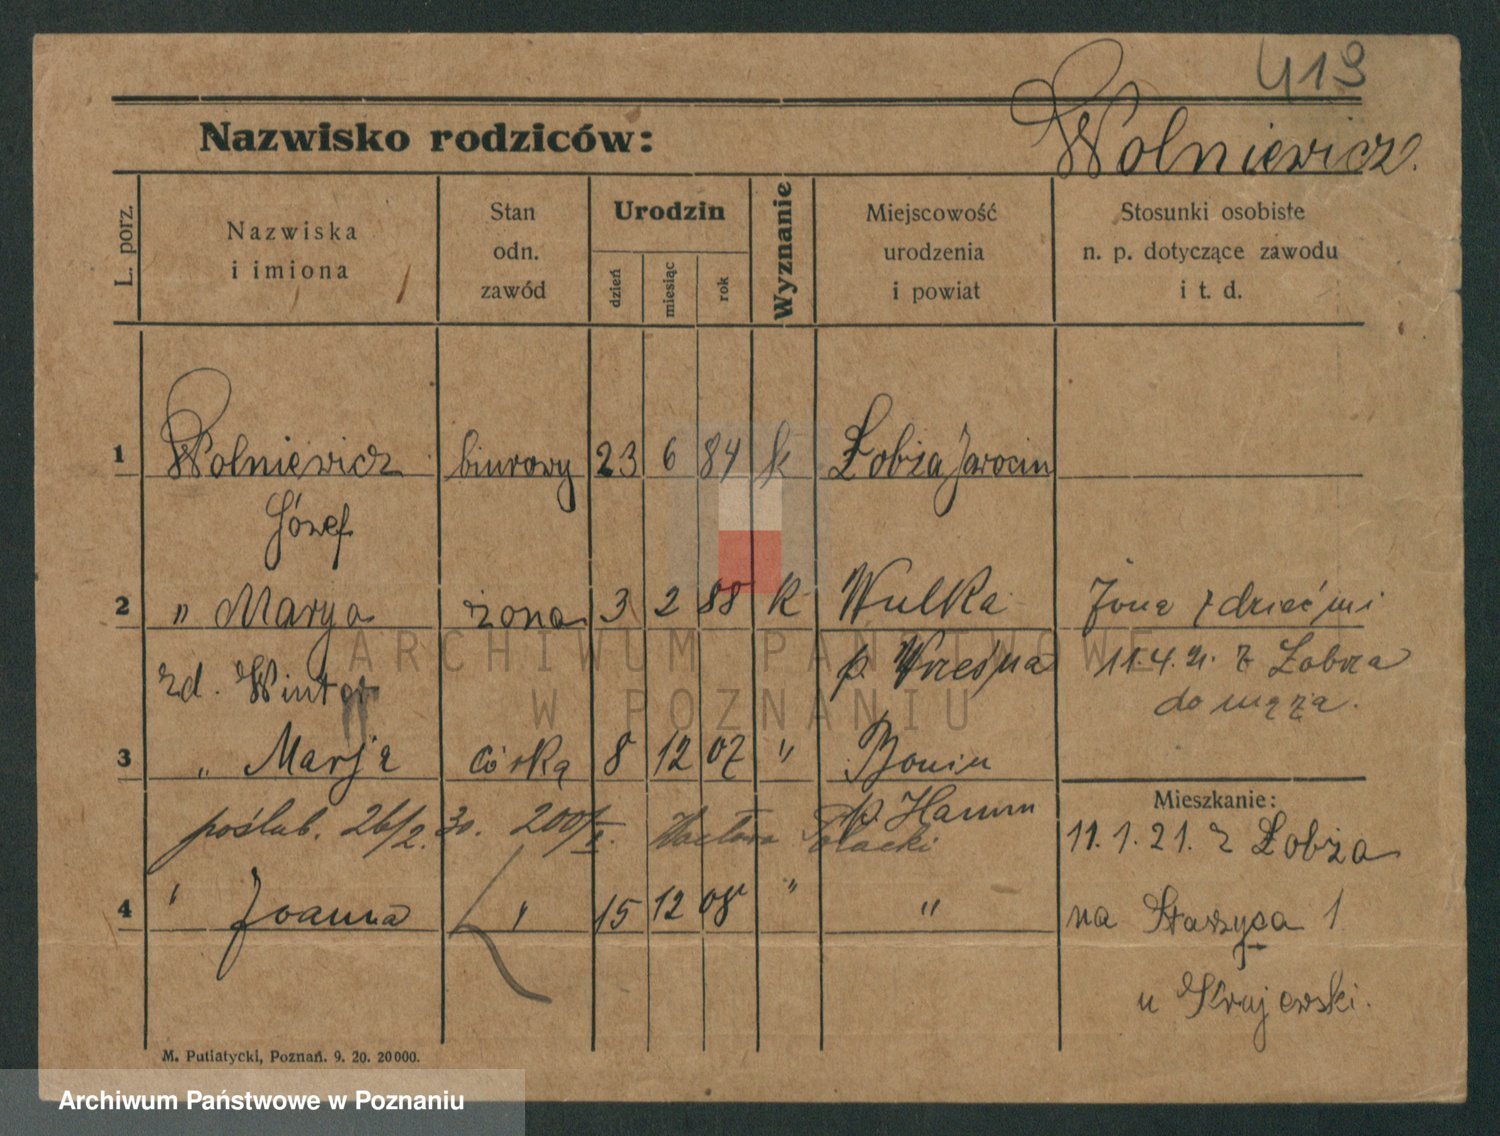 419
Nazwisko rodziców: Wolniewicz.
L. porz.
Nazwiska
i imiona
Stan
odn.
zawód
Urodzin
dzień
miesiąc
rok
Wyznanie
Miejscowość
urodzenia
i powiat
Stosunki osobiste
n. p. dotyczące zawodu
i t. d.
1 Wolniewicz biurowy 23 6 84 k Łobża Jarocin
Józef
2 " Marya żona 3 2 88 k Wulka Żona z dziećmi
zd. Winter p. Września 11.4.21. z Łobża
do męża.
3 " Marja córka 8 12 07 " Bonin
p. Hamm
poślub. 26/2. 30. 200/II. Polacki
Mieszkanie:
11.1.21. z Łobża
4 " Joanna " 15 12 08 " "
na Staszyca 1
u Krajewski.
M. Putiatycki, Poznań. 9. 20. 20000.
ARCHIWUM PAŃSTWOWE
W POZNANIU
Archiwum Państwowe w Poznaniu